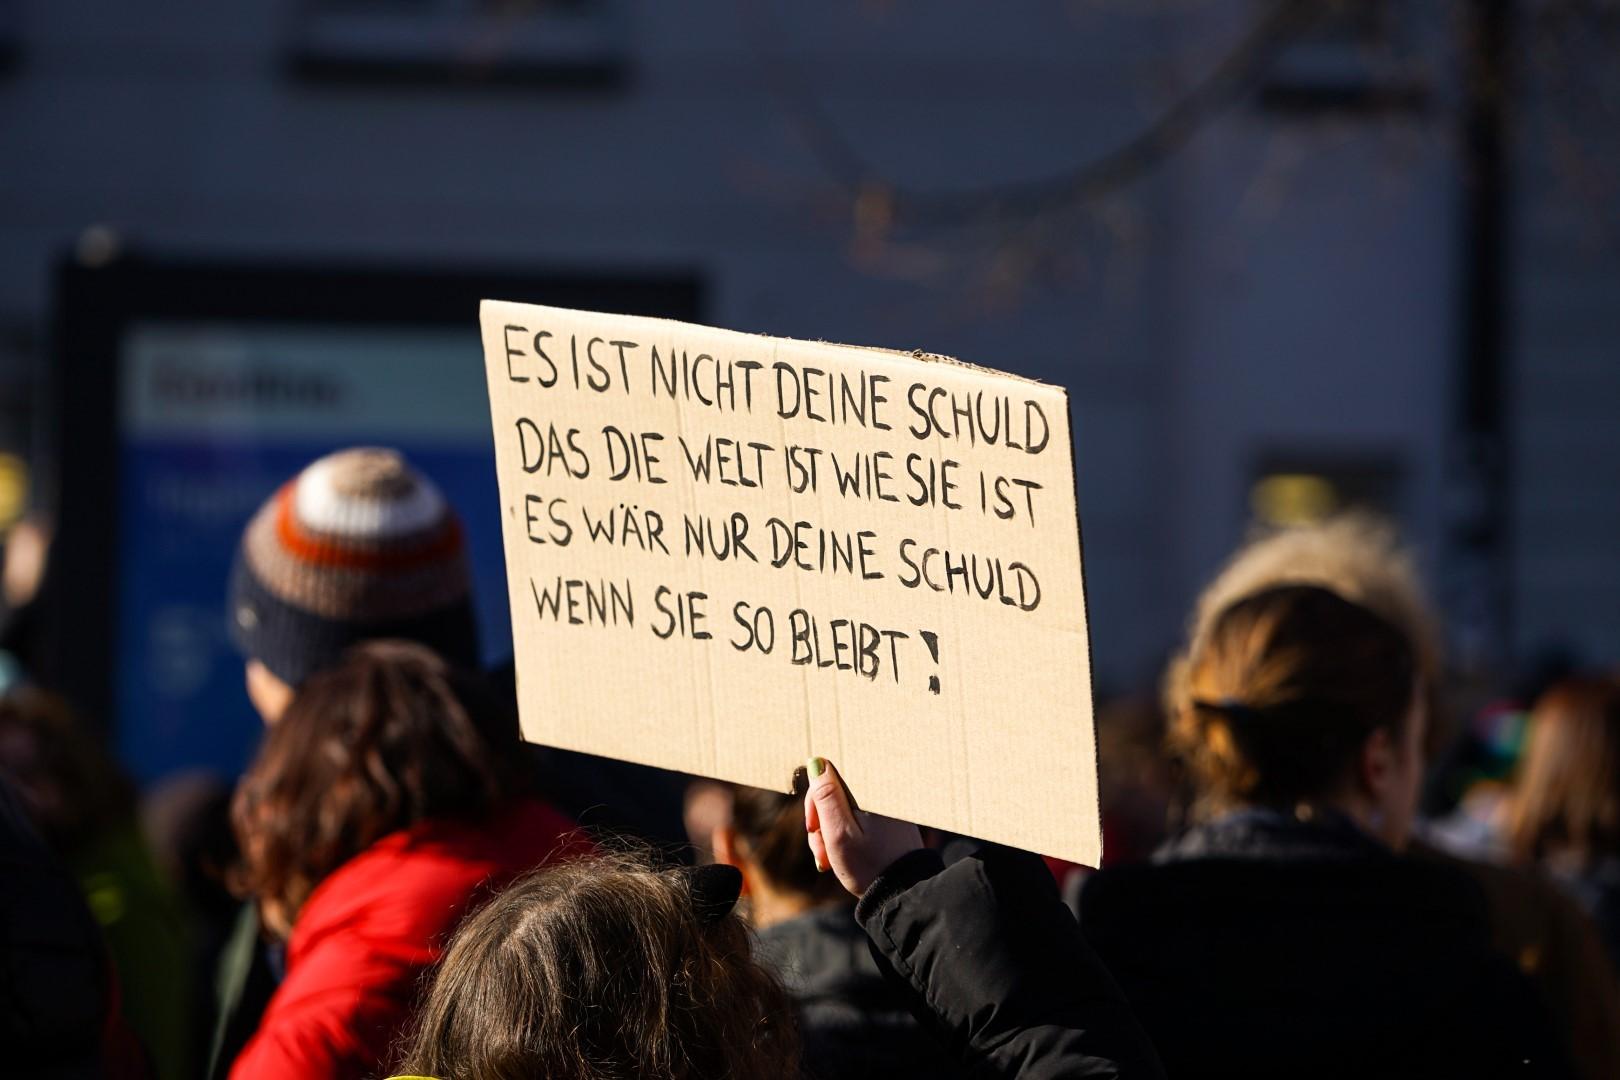 ES IST NICHT DEINE SCHULD
DAS DIE WELT IST WIE SIE IST
ES WÄR NUR DEINE SCHULD
WENN SIE SO BLEIBT!